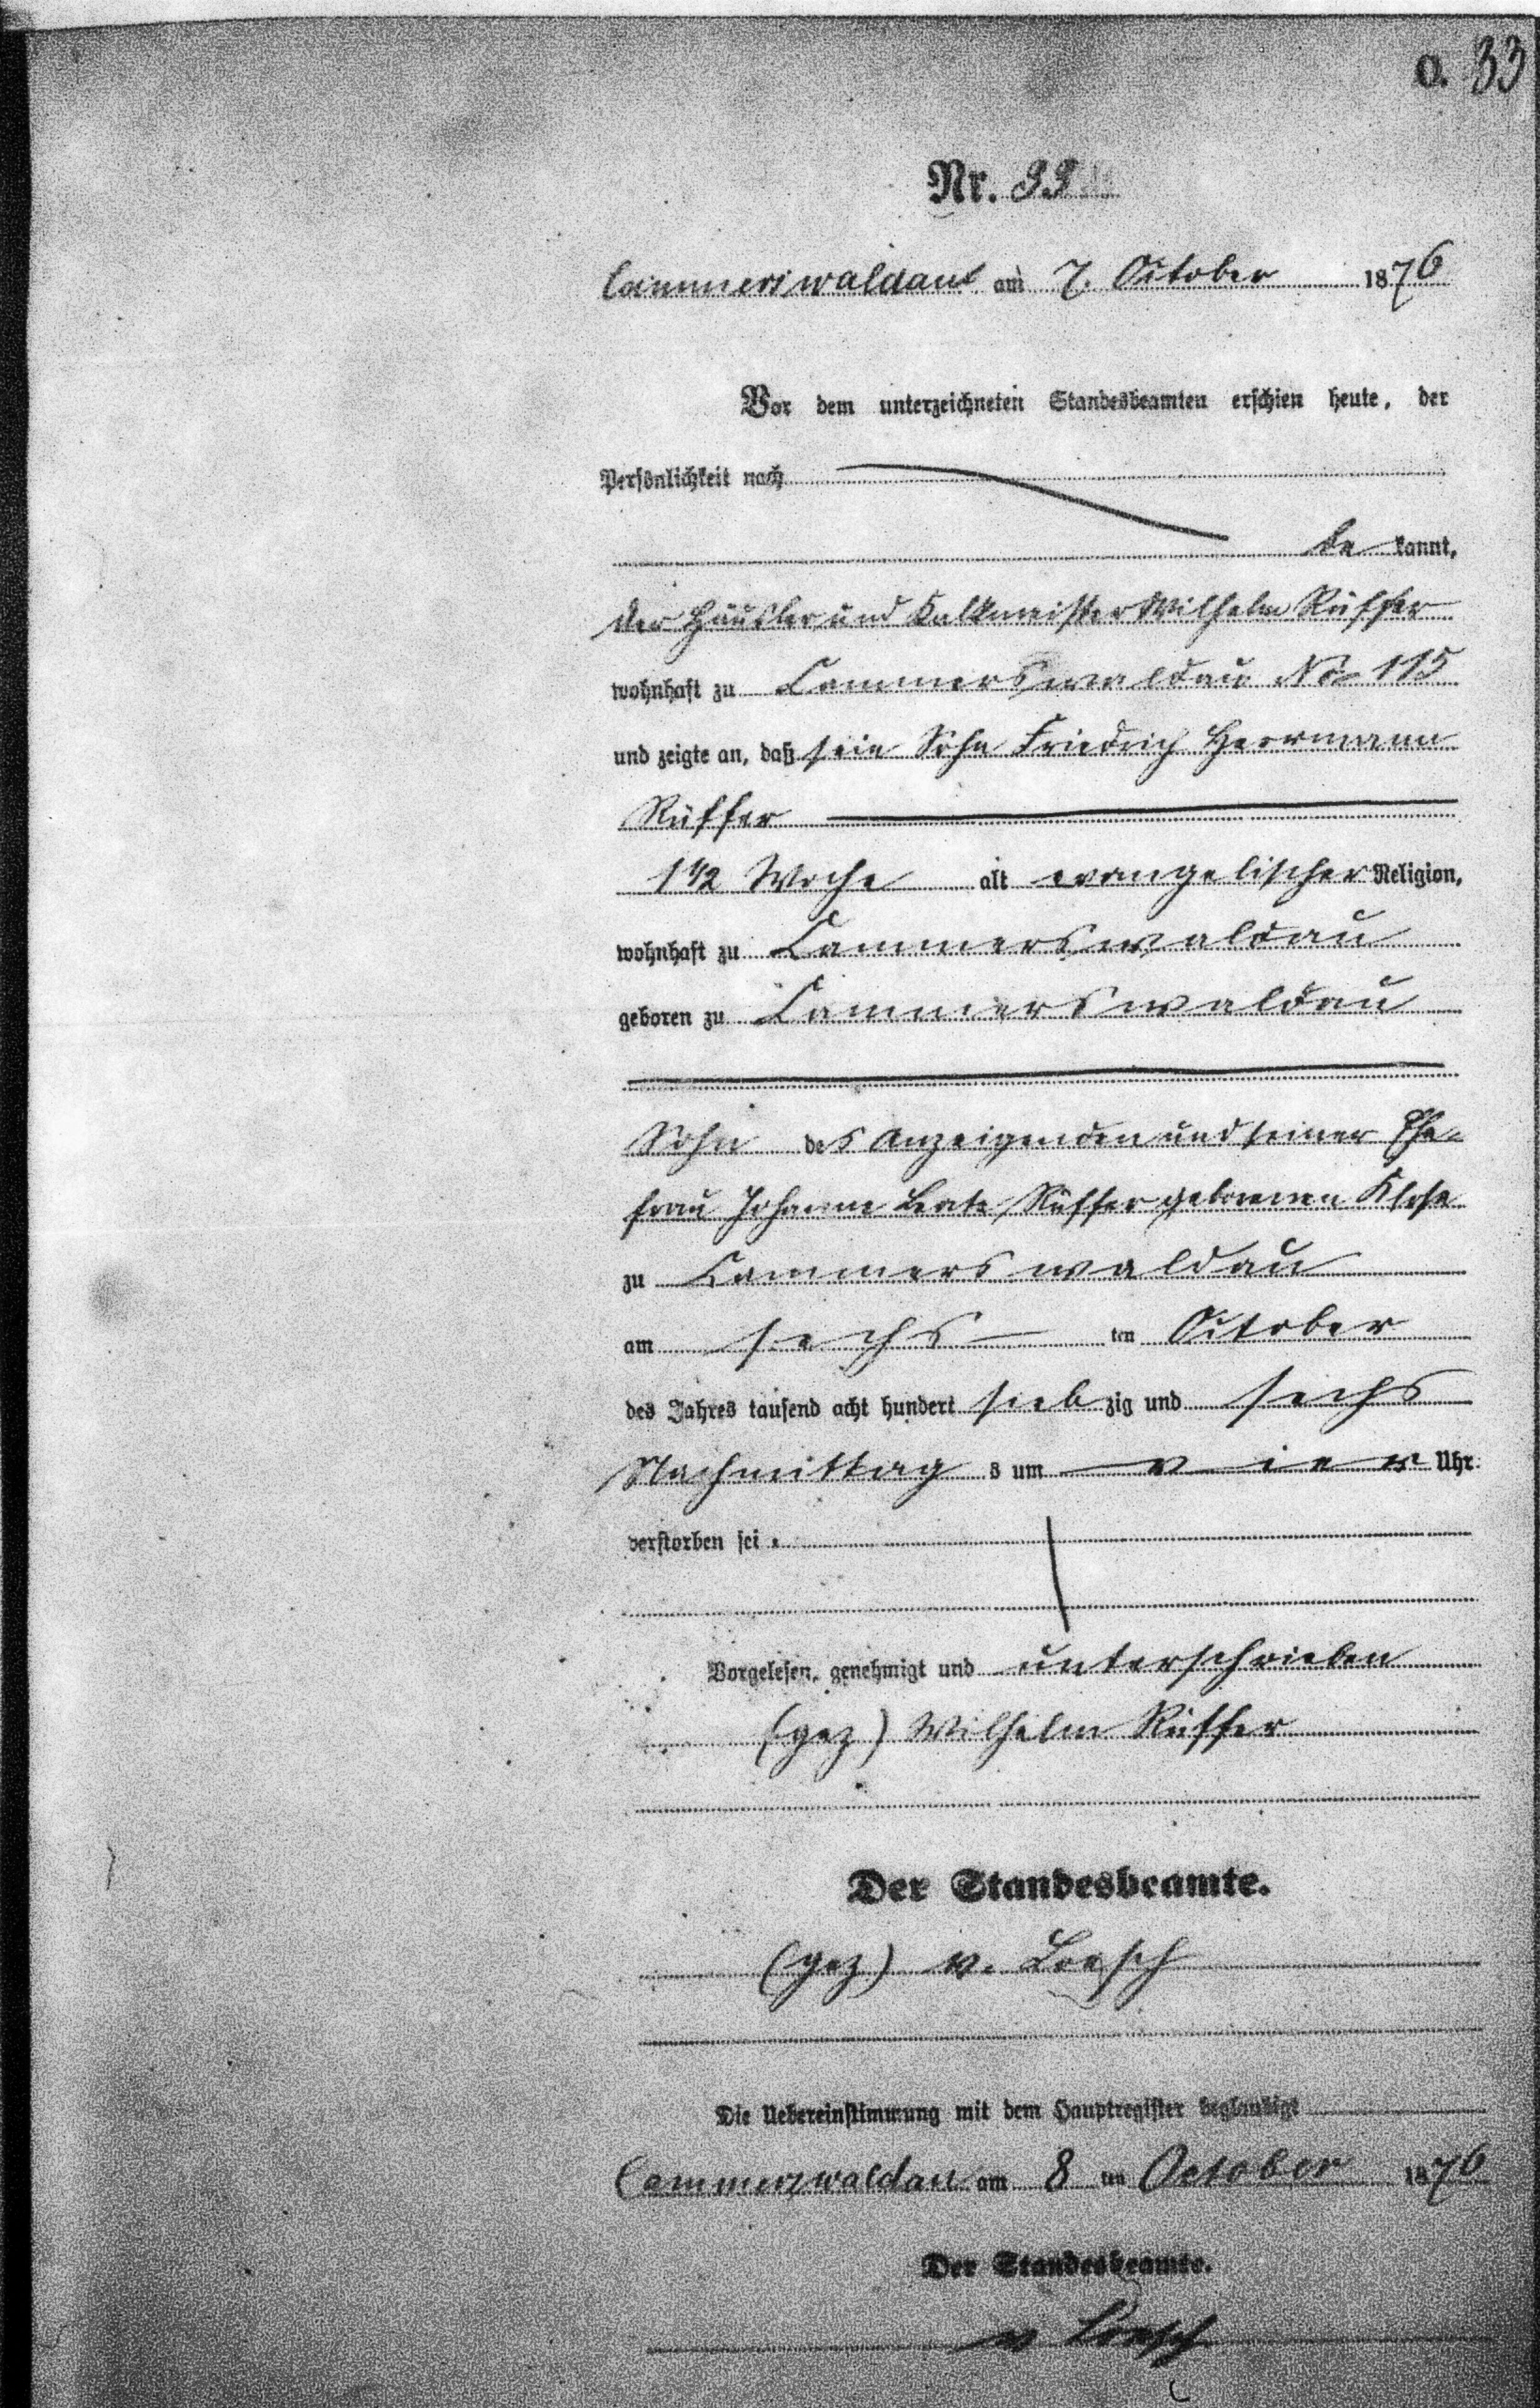 C. 33
Nr. 33
Cammerswaldau am 7. October 1876
Vor dem unterzeichneten Standesbeamten erschien heute, der
Persönlichkeit nach
be kannt,
der Häusler und Kalkmeister Wilhelm Rüffer
wohnhaft zu Cammerswaldau No 115
und zeigte an, daß sein Sohn Friedrich Herrmann
Rüffer
1 1/2 Woche alt evangelischer Religion,
wohnhaft zu Cammerswaldau
geboren zu Cammerswaldau
Sohn des Anzeigenden und seiner Ehe-
frau Johanne Beate Rüffer geborenen Klose
zu Cammerswaldau
am sechs ten October
des Jahres tausend acht hundert sieb zig und sechs
Nachmittag s um vier Uhr
verstorben sei.
Vorgelesen, genehmigt und unterschrieben
(gez) Wilhelm Rüffer
Der Standesbeamte.
(gez) v. Loesch
Die Uebereinstimmung mit dem Hauptregister beglaubigt
Cammerswaldau am 8 ten October 1876
Der Standesbeamte.
v Loesch